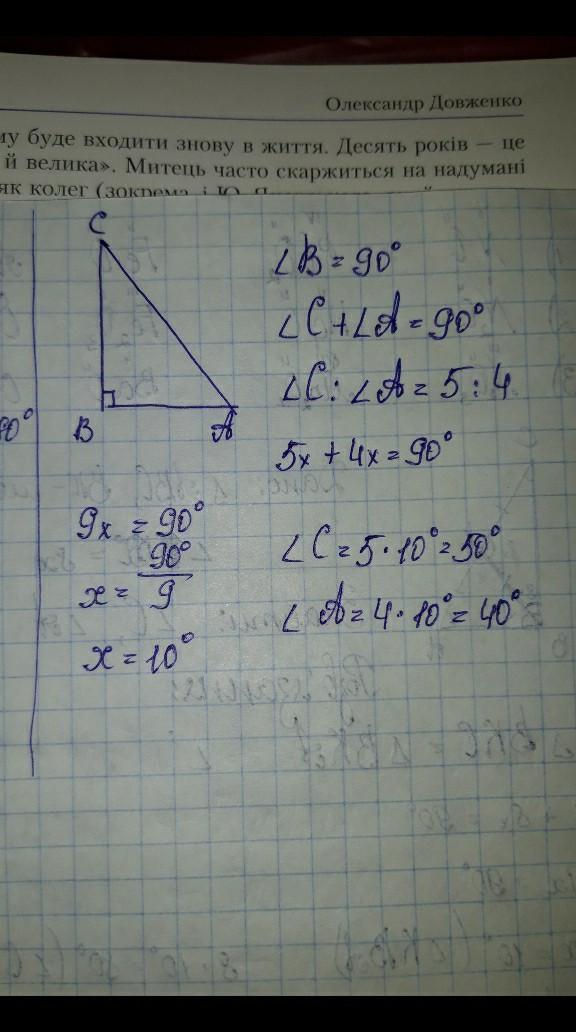 Олександр Довженко
му буде входити знову в життя. Десять років — це
й велика». Митець часто скаржиться на надумані
як колег (зокрема і Ю.
C
B
A
∠B = 90°
∠C + ∠A = 90°
∠C : ∠A = 5 : 4
5x + 4x = 90°
9x = 90°
x = 90°/9
x = 10°
∠C = 5 · 10° = 50°
∠A = 4 · 10° = 40°